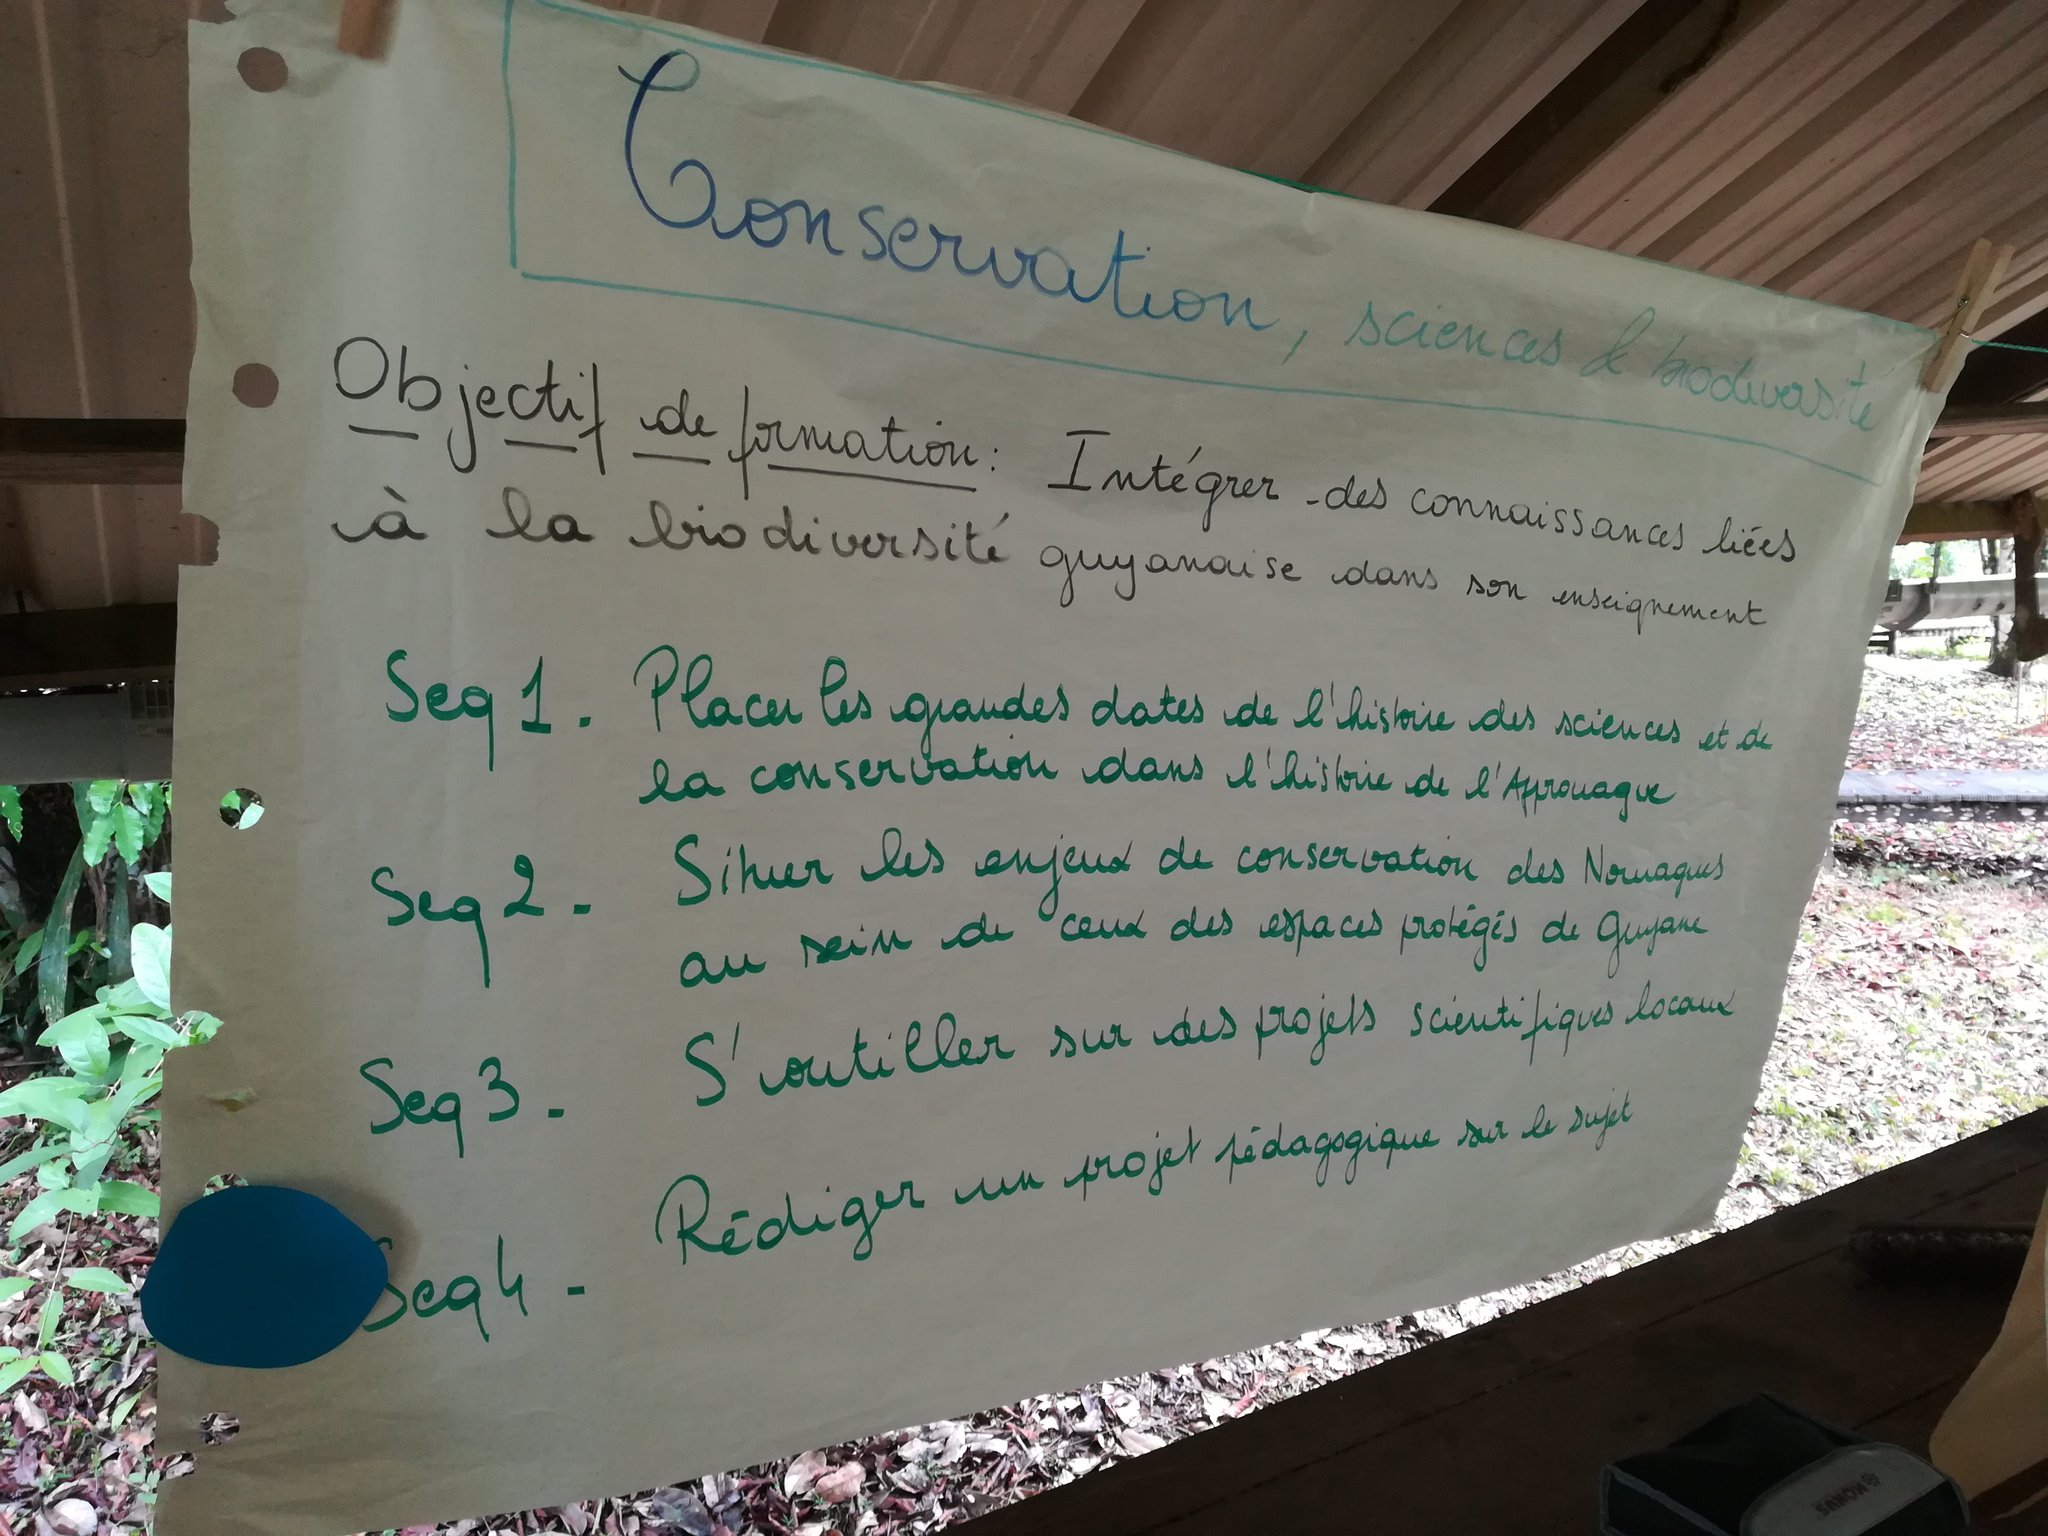 Conservation, sciences & biodiversité
Objectif de formation: Intégrer des connaissances liées
à la biodiversité guyanaise dans son enseignement
Seq 1. Placer les grandes dates de l'histoire des sciences et de
la conservation dans l'histoire de l'Approuague
Seq 2 - Situer les enjeux de conservation des Nouragues
au sein de ceux des espaces protégés de Guyane
Seq 3 - S'outiller sur des projets scientifiques locaux
Seq 4 - Rédiger un projet pédagogique sur le sujet